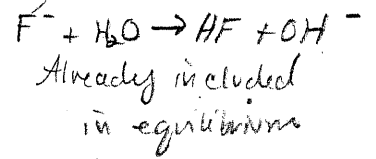 F⁻ + H₂O → HF + OH⁻
Already included
in equilibrium